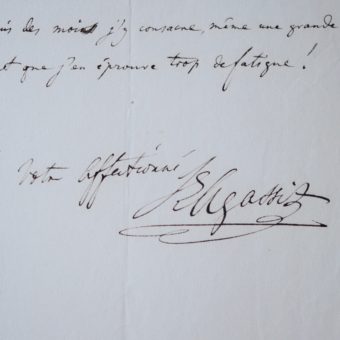 des mois j'y consacre, même une grande
que j'en éprouve trop de fatigue !
Votre Affectionné
L Agassiz